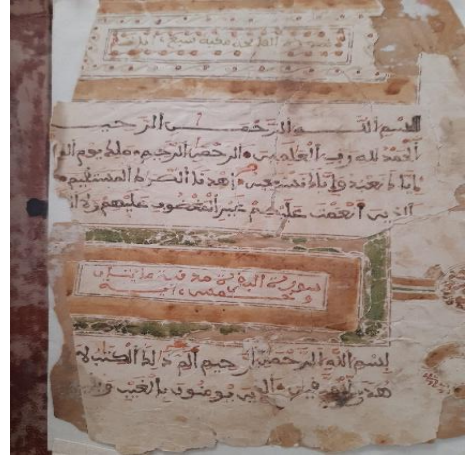 سورة
بسم الله الرحمن الرحيم
الحمد لله رب العلمين الرحمن الرحيم ملك يوم الد
اياك نعبد واياك نستعين اهدنا الصرط المستقيم
الذين انعمت عليهم غير المغضوب عليهم ولا
سورة البقرة مدنية مايتان
اية
بسم الله الرحمن الرحيم الم ذلك الكتب لا
هدى للمتقين الذين يومنون بالغيب و